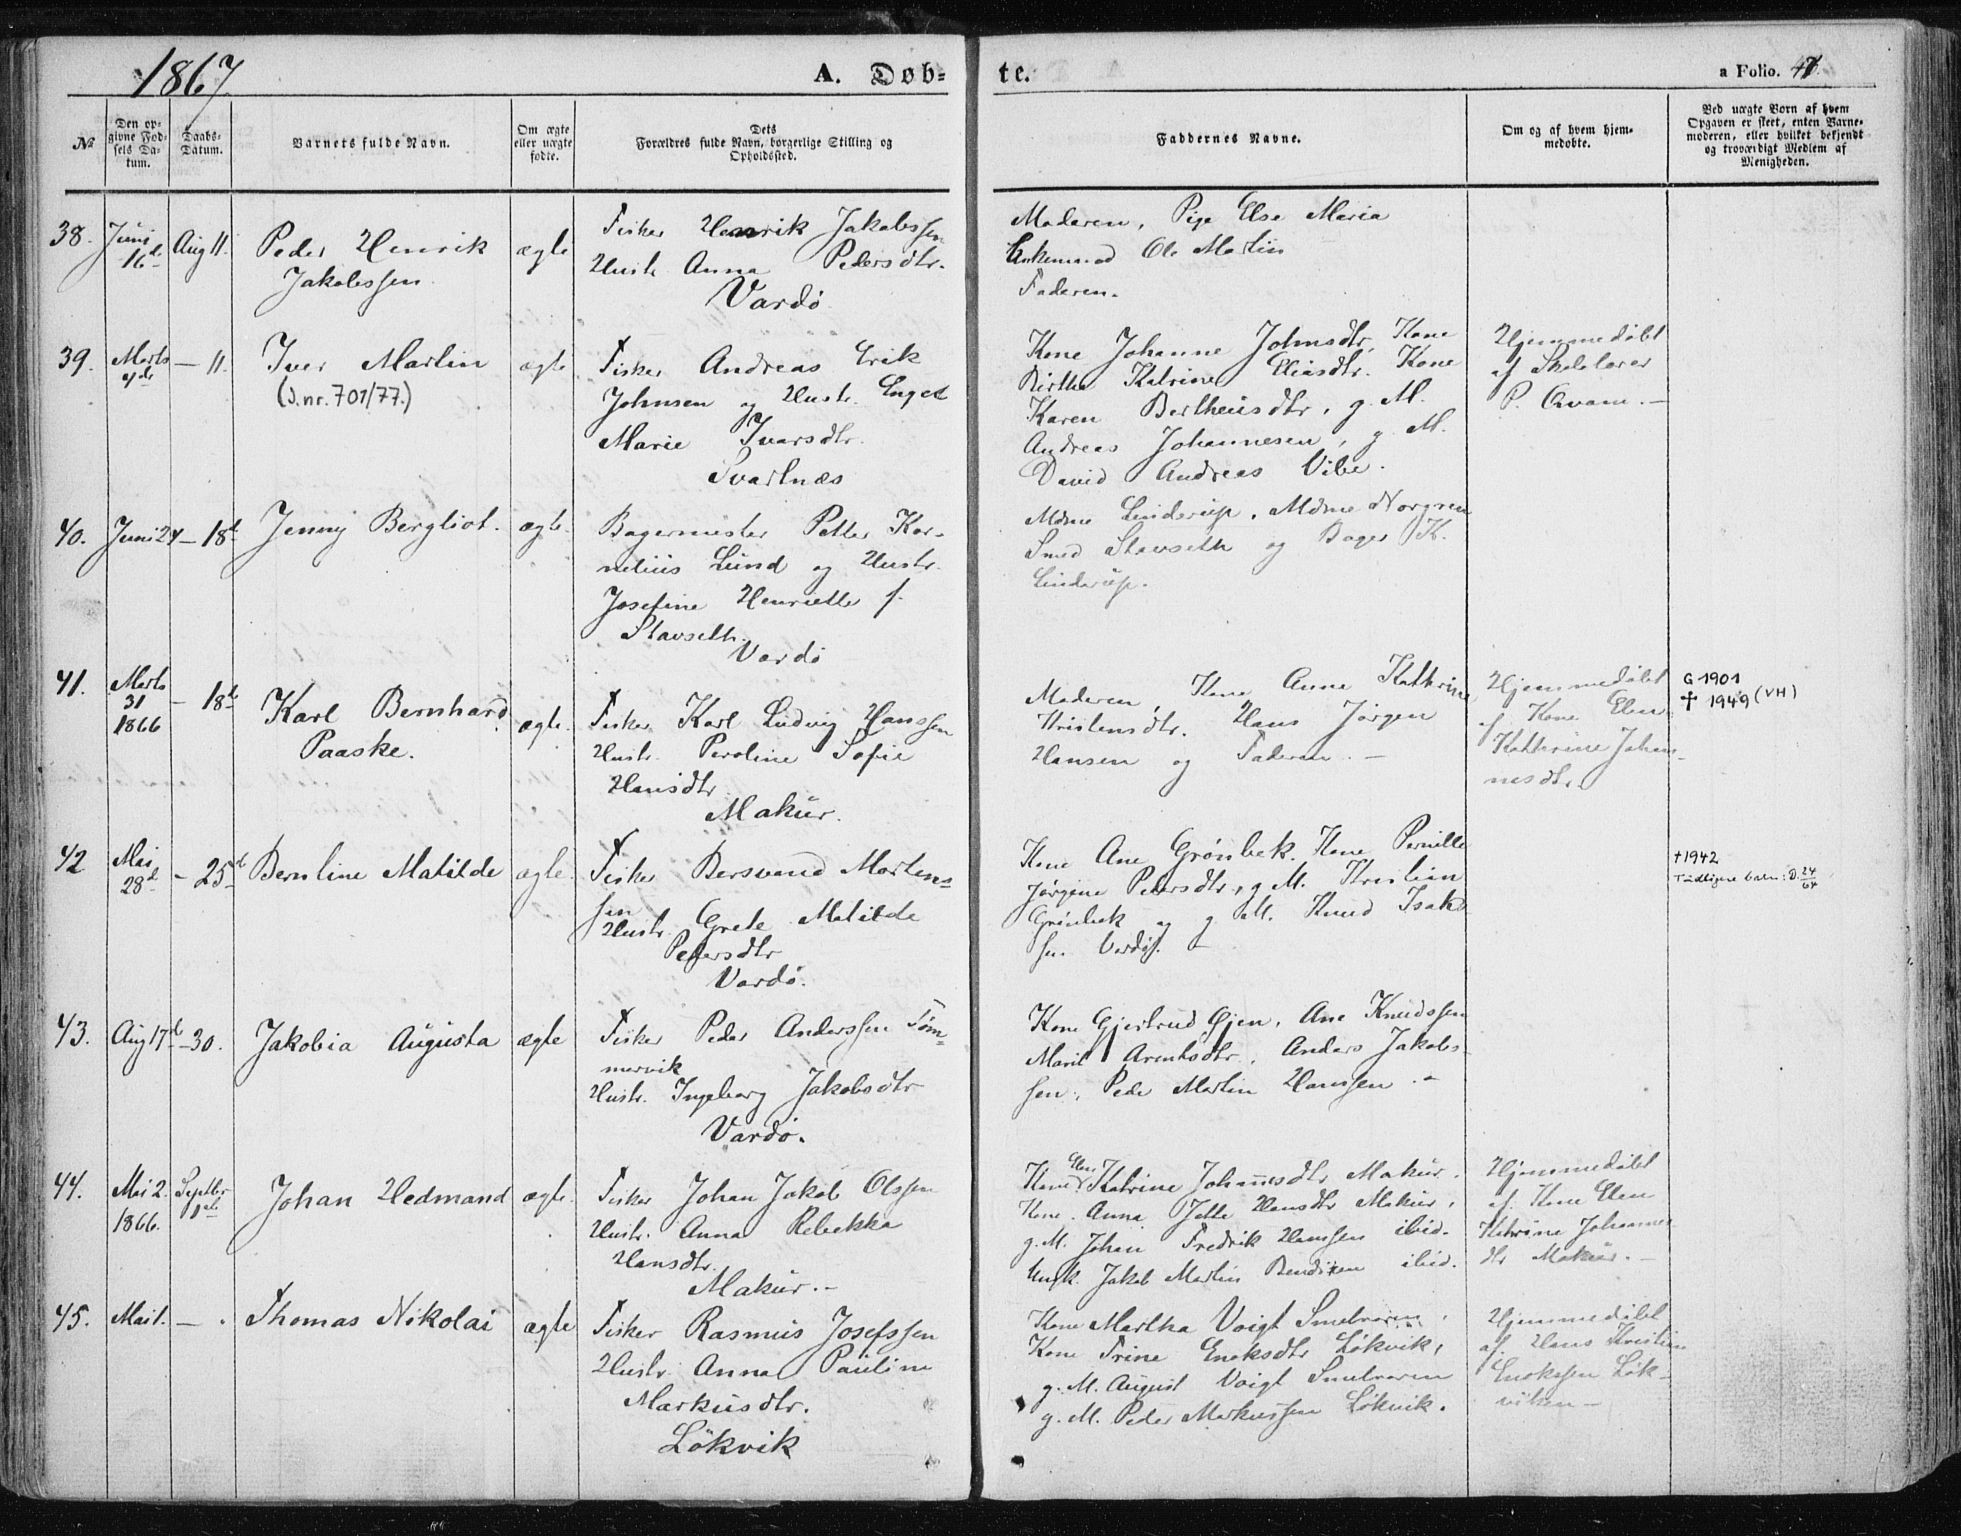 1867
A. Døb-
te.
a Folio. 47.
№
Den op-
givne Fød-
sels Da-
tum.
Daabs-
Datum.
Barnets fulde Navn.
Om ægte
eller uægte
fødte.
Dets
Forældres fulde Navn, borgerlige Stilling og
Opholdssted.
Faddernes Navne.
Om og af hvem hjem-
medøbte.
Ved uægte Børn af hvem
Opgaven er skeet, enten Barne-
moderen, eller hvilket bekjendt
og troværdigt Medlem af
Menigheden.
38.
Juni
16de
Aug 11.
Peder Henrik
Jakobssen
ægte
Fisker Henrik Jakobssen
Hustr. Anna Pedersdtr.
Vardö
Moderen, Pige Else Maria
Enkemand Ole Martin
Faderen.
39.
Marts
— 11.
Iver Martin
(J.nr. 701/77.)
ægte
Fisker Andreas Erik
Johnsen og Hustr. Inger
Marie Ivarsdtr.
Svartnæs
Kone Johanne Johnsdtr, Kone
Birthe Katrine Eliasdtr. Kone
Karen Bertheusdtr, g. M.
Andreas Johannesen, g. M.
David Andreas Vibe.
Hjemmedøbt
af Skolelærer
P. Qvam. —
40.
Juni 24
— 18de
Jenny Bergliot.
ægte.
Bagermester Petter Kor-
nelius Lund og Hustr.
Josefine Henriette f.
Stavseth.
Vardö
Mdme Linderup, Mdme Norgren
Smed Stavseth og Bager K.
Linderup.
41.
Marts
31
1866
— 18de
Karl Bernhard
Paaske.
ægte.
Fisker Karl Ludvig Hanssen
Hustr. Peroline Sofie
Hansdtr
Makur.
Moderen, Kone Anne Kathrine
Kristensdtr. Hans Jørgen
Hansen og Faderen. —
Hjemmedøbt
af Kone Elen
Kathrine Johan-
nesdtr.
G 1901
† 1949 (VH)
42
Mai
28de
- 25de
Berntine Matilde
ægte.
Fisker Bersvend Morten-
sen
Hustr. Grete Matilde
Petersdtr
Vardö.
Kone Ane Grönbek. Kone Pernille
Jørgine Petersdtr, g. M. Kristian
Grönbek og g. M. Knud Isak-
sen Vardø. —
†1942
Tidligere barn: D. 24/64
43.
Aug 17de
- 30.
Jakobia Augusta
ægte
Fisker Peder Anderssen Töm-
mervik
Hustr. Ingeborg Jakobsdtr
Vardö.
Kone Gjertrud Gjen, Ane Knudssen
Marit Arentsdtr, Anders Jakobs-
sen, Peder Martin Hanssen. —
44.
Mai 2.
1866.
Septbr
1ste
Johan Hedmand
ægte.
Fisker Johan Jakob Olssen
Hustr. Anna Rebekka
Hansdtr.
Makur. —
Kone Elen Katrine Johannesdtr Makur.
Kone. Anna Jette Hansdtr Makur,
g. M. Johan Fredrik Hanssen ibid.
Ungk. Jakob Martin Bendixen ibid.
Hjemmedøbt
af Kone Elen
Katrine Johannes-
dtr Makur. —
45.
Mai 1.
— .
Thomas Nikolai
ægte
Fisker Rasmus Josefssen
Hustr. Anna Pauline
Markusdtr.
Lökvik
Kone Martha Voigt Smelroren,
Kone Trine Enoksdtr Lökvik,
g. M. August Voigt Smelroren
g. M. Peder Markussen Lökvik.
Hjemmedøbt
af Hans Kristian
Enokssen Lök-
viken —